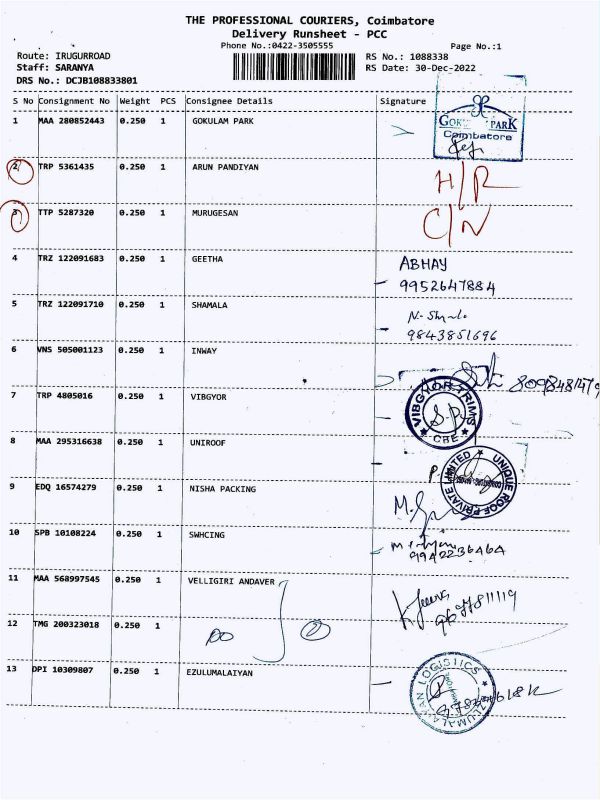 THE PROFESSIONAL COURIERS, Coimbatore
Delivery Runsheet - PCC
Phone No.:0422-3505555
Page No.:1
Route: IRUGURROAD
RS No.: 1088338
Staff: SARANYA
RS Date: 30-Dec-2022
DRS No.: DCJB108833801
S No Consignment No Weight PCS Consignee Details Signature
1 MAA 280852443 0.250 1 GOKULAM PARK
PARK
Coimbatore
2 TRP 5361435 0.250 1 ARUN PANDIYAN H/R
3 TTP 5287320 0.250 1 MURUGESAN C/N
4 TRZ 122091683 0.250 1 GEETHA ABHAY
9952647884
5 TRZ 122091710 0.250 1 SHAMALA
9843851696
6 VNS 505001123 0.250 1 INWAY
7 TRP 4805016 0.250 1 VIBGYOR
VIBGYOR TRIMS
CBE
8 MAA 295316638 0.250 1 UNIROOF
UNIQUE ROOF PRIVATE LIMITED
9 EDQ 16574279 0.250 1 NISHA PACKING
10 SPB 10108224 0.250 1 SWHCING
9942236464
11 MAA 568997545 0.250 1 VELLIGIRI ANDAVER
9677811119
12 TMG 200323018 0.250 1
2
13 DPI 10309807 0.250 1 EZULUMALAIYAN
LOGISTICS